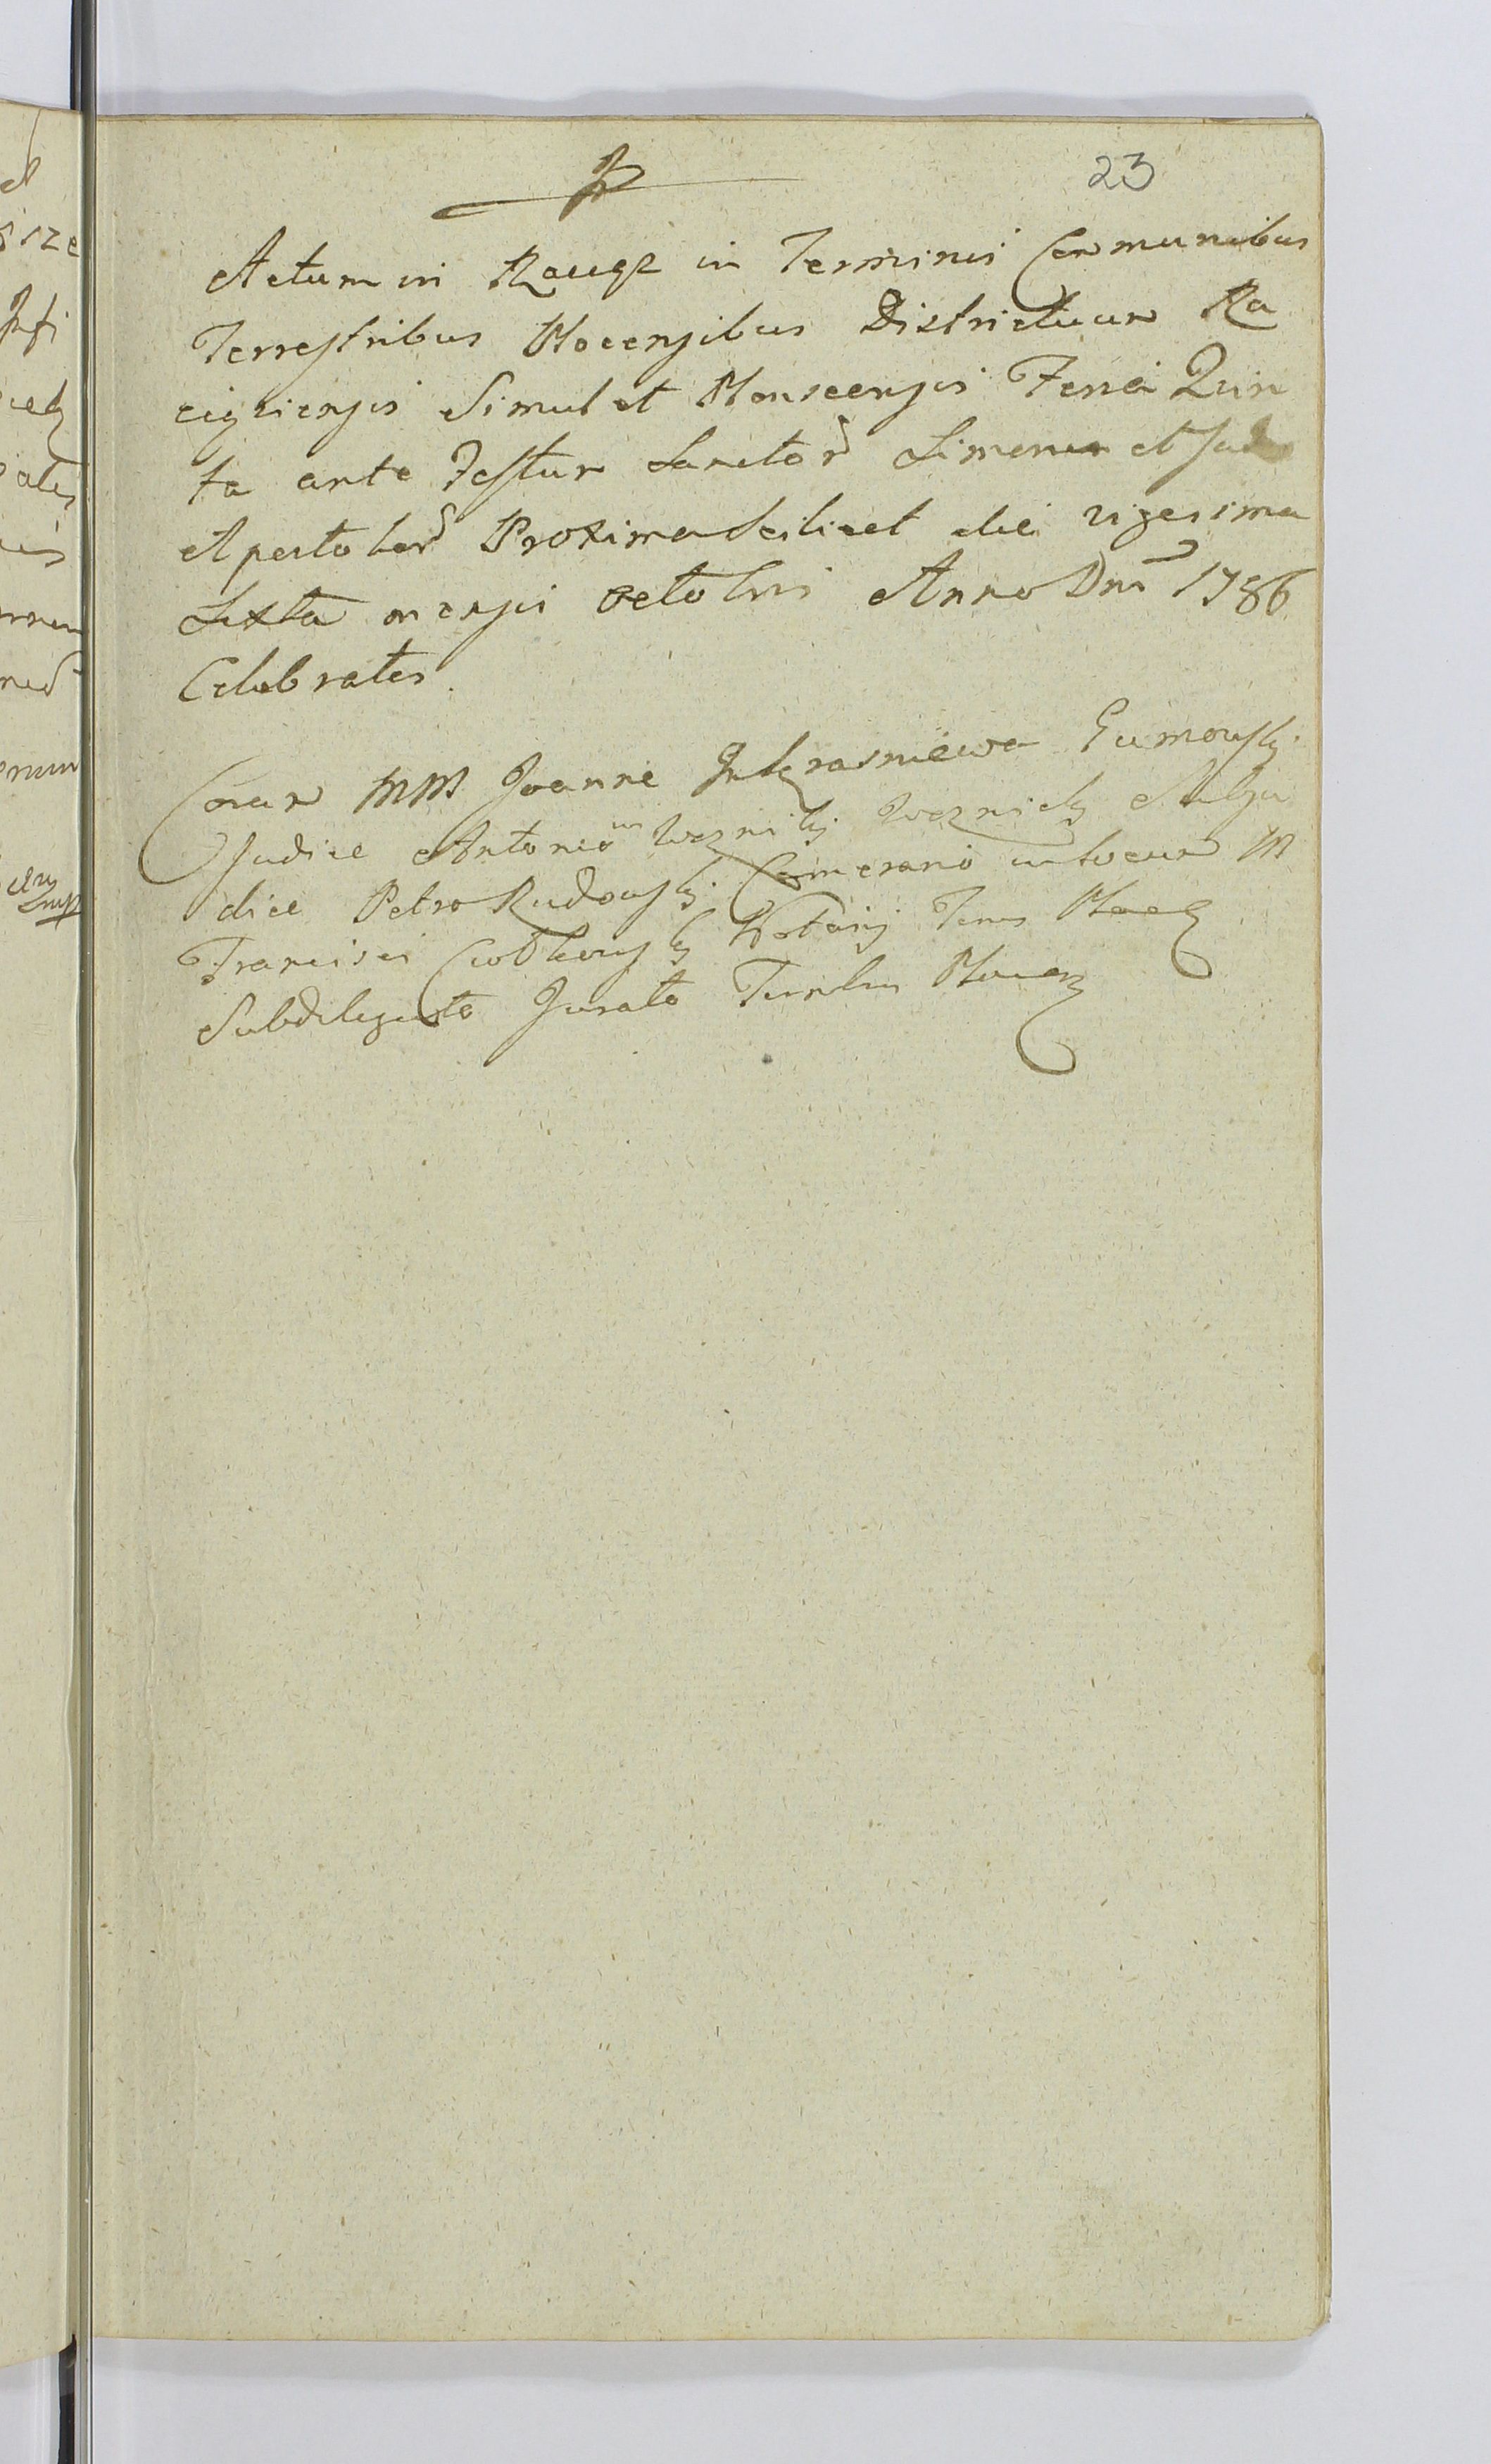 23
Actum in Raciąż in Terminis Communibus
Terrestribus Plocensibus Districtuum Ra
ciązensis Simul et Plonscensis Feria Quin
ta ante Festum Sanctor Simonis et Jud
Apostolor Proxima Scilicet die vigesima
Sexta mensis Octobris Anno Dni 1786
Celebratis.
Coram MM Joanne Gumowski
Judice Antonio Subju
dice Petro Rudowski Camerario in locum M
Francisci Notarij Terris
Subdelegato Jurato